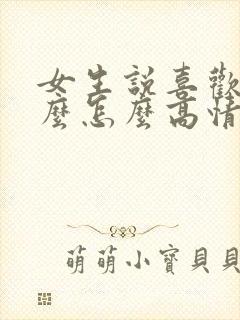 女生説喜歡
麼怎麼高情
萌萌小寶貝貝